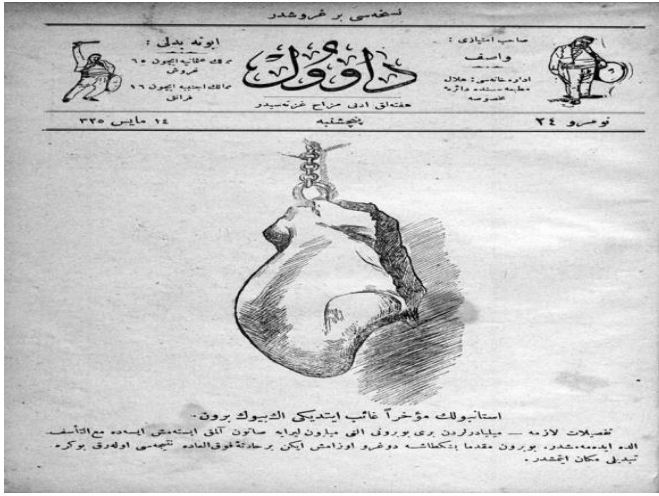 نسخه‌سی بر غروشدر
صاحب امتیازی :
واصف
اداره‌خانه‌سی : هلال
مطبعه سنده دائرۀ
مخصوصه
داوول
هفته‌لق ادبی مزاح غزته‌سیدر
ابونه بدلی :
ممالك عثمانیه ایچون ٦٥
غروش
ممالك اجنبیه ایچون ١٦
فرانق
نومرو ٢٤
پنچشنبه
١٤ مایس ٣٢٥
استانبولك مؤخراً غائب ایتدیکی اڭ بیوك برون.
تفصیلات لازمه — میلیاردلردن بری بو برونی اللی میلیون لیرایه صاتون آلمق ایسته‌مش ایسه‌ده مع‌التأسف
الده ایده‌مه‌مشدر. بو برون مقدما بشكطاشه دوغرو اوزامش ایكن بر حادثۀ فوق‌العاده نتیجه‌سی اوله‌رق بوكره
تبدیل مكان ایتمشدر.